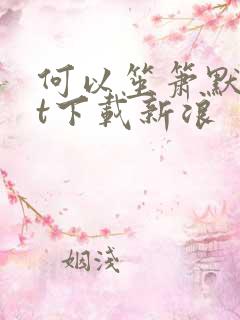 何以笙箫默
t下载新浪
姻浅